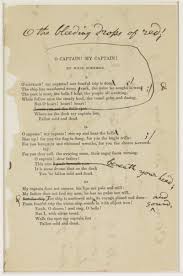 O the bleeding drops of red!
O CAPTAIN! MY CAPTAIN!
BY WALT WHITMAN.
O CAPTAIN! my captain! our fearful trip is done,
The ship has weathered every rack, the prize we sought is won,
The port is near, the bells I hear, the people all exulting,
While follow eyes the steady keel, the vessel grim and daring.
But O heart! heart! heart!
Where on the deck my captain lies,
Fallen cold and dead.
O captain! my captain! rise up and hear the bells
Rise up! for you the flag is flung, for you the bugle trills:
For you bouquets and ribboned wreaths, for you the shores
For you they call, the swaying mass, their eager faces turning.
O captain! dear father!
beneath your head,
It is some dream that on the deck
You've fallen cold and dead.
My captain does not answer, his lips are pale and still:
My father does not feel my arm, he has no pulse nor will.
and sound,
From fearful trip the victor ship comes in with object won!
Exult, O shores! and ring, O bells!
But I, with silent tread,
Walk the spot my captain lies,
Fallen cold and dead.